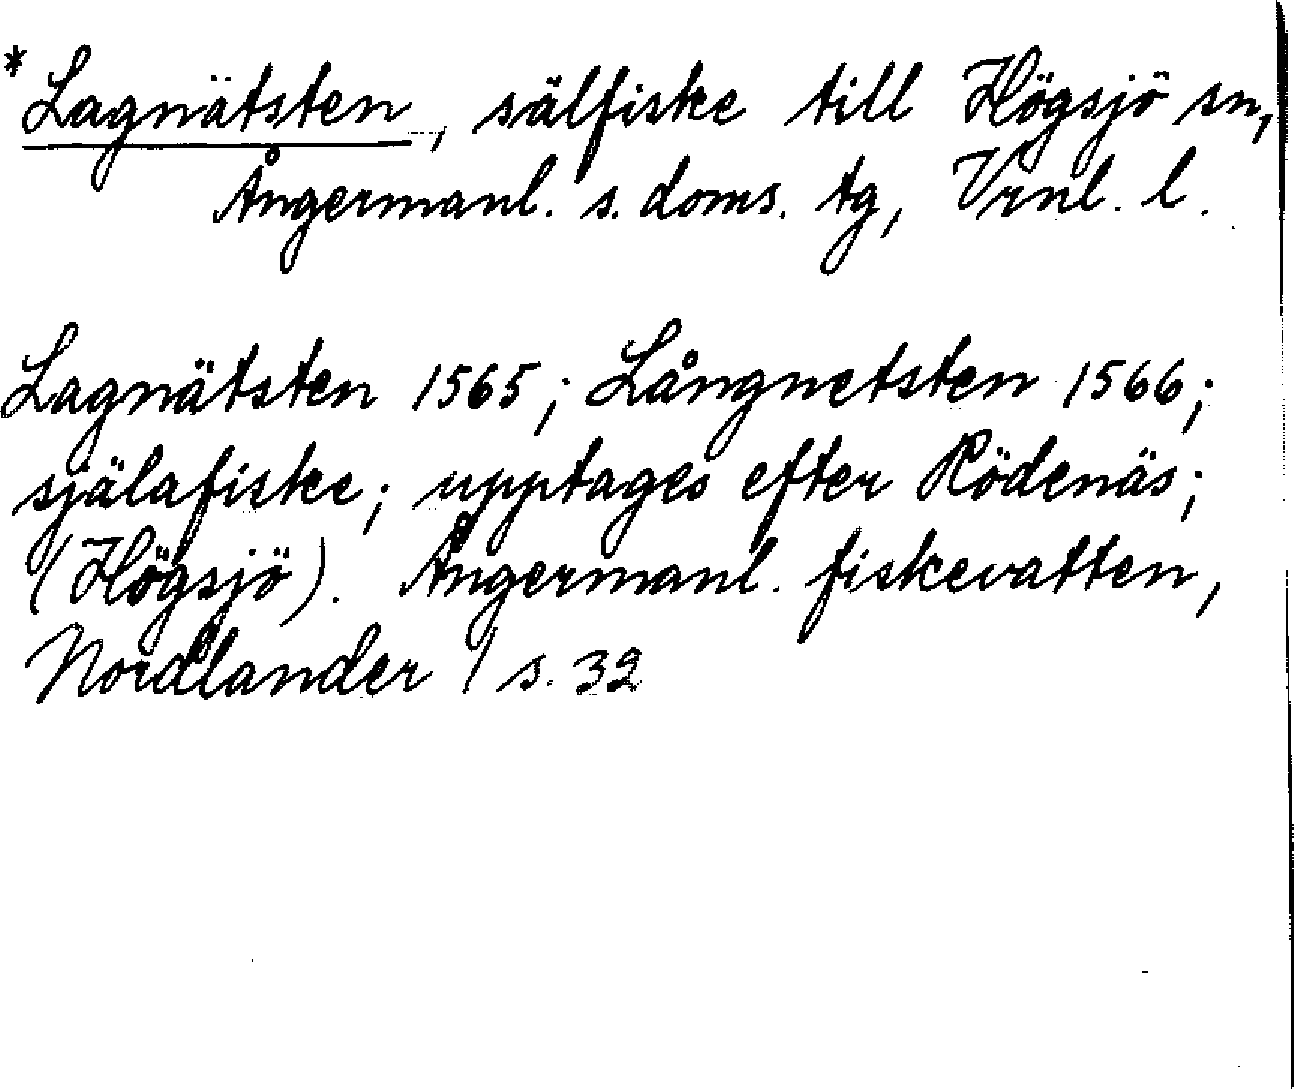 *Lagnätsten, sälfiske till Högsjö sn,
Ångermanl. s. doms. tg, Vrnl. l.
Lagnätsten 1565; Långnetsten 1566;
själafiske; upptages efter Rödenäs;
(Högsjö). Ångermanl. fiskevatten,
Nordlander / s. 32